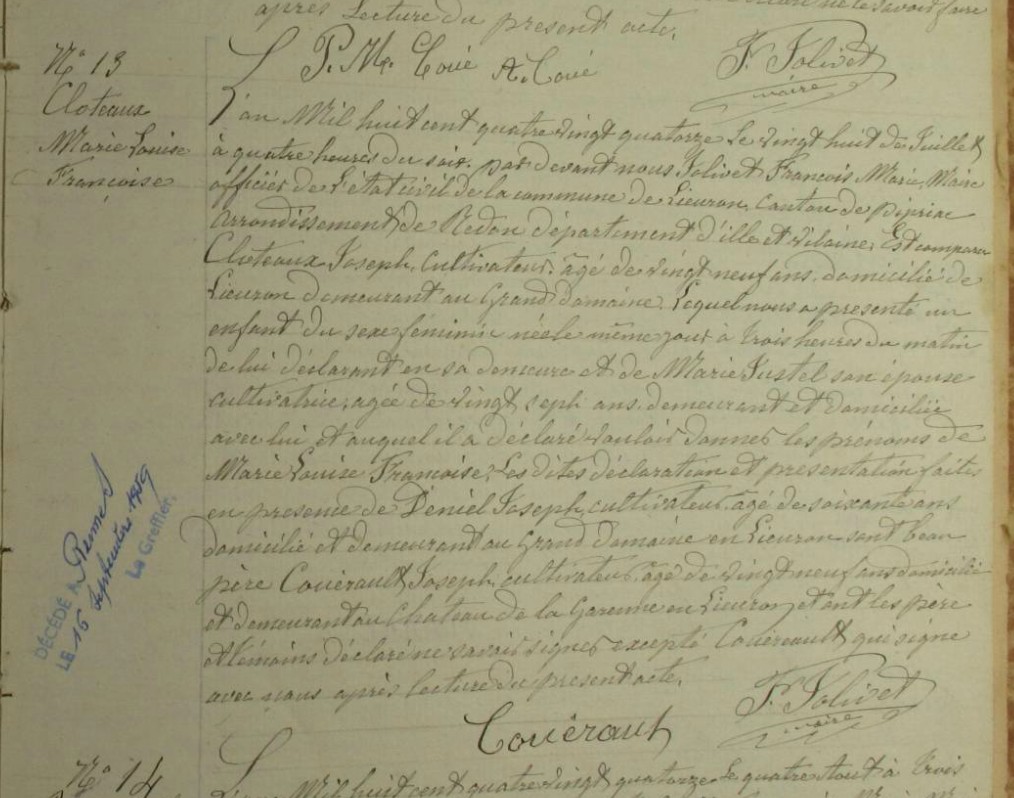 après Lecture du present acte.
P. M. Coué A. Coué F. Jolivet
maire
N° 13
Cloteaux
Marie Louise
Françoise
L'an Mil huit cent quatre vingt quatorze le vingt huit de Juillet
à quatre heures du soir. par devant nous Jolivet François Marie, Maire
officier de l'état civil de la commune de Lieuron, canton de Pipriac
arrondissement de Redon département d'ille et vilaine, Est comparu
Cloteaux Joseph, cultivateur, âgé de vingt neuf ans, domicilié de
Lieuron demeurant au Grand Domaine. Lequel nous a presenté un
enfant du sexe féminin née le même jour à trois heures du matin
de lui déclarant en sa demeure et de Marie Justel son épouse
cultivatrice, agée de vingt sept ans. demeurant et domiciliée
avec lui et auquel il a déclaré vouloir donner les prénoms de
Marie Louise Françoise, Les dites déclaration et presentation faites
en presence de Déniel Joseph, cultivateur, agé de soixante ans
domicilié et demeurant au Grand Domaine en Lieuron beau
père Couérault Joseph cultivateur, âgé de vingt neuf ans domicilié
et demeurant au Chateau de la Garenne en Lieuron, et ont les père
et témoins déclaré ne savoir signer excepté Couéreault qui signe
avec nous après lecture du present acte.
Couérault F. Jolivet
maire
DÉCÉDÉ A Rennes
LE 16 Septembre 1959
Le Greffier,
N° 14
L'an Mil huit cent quatre vingt quatorze le quatre Aout à trois